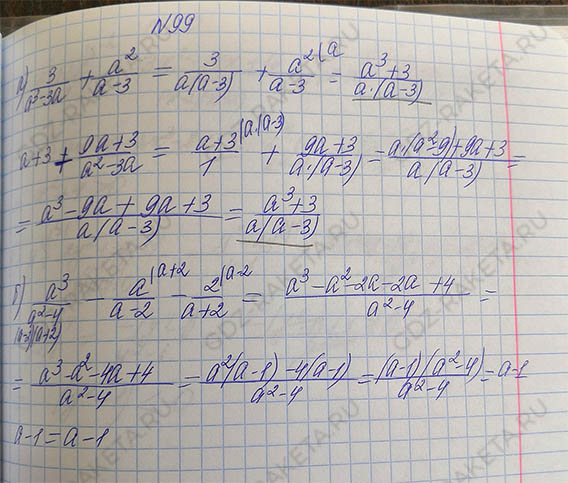 №99
а) 3/(a²-3a) + a²/(a-3) = 3/(a(a-3)) + a²⁽ᵃ/(a-3) = (a³+3)/(a·(a-3))
a+3 + (9a+3)/(a²-3a) = (a+3)/1 ⁽ᵃ·⁽ᵃ⁻³⁾ + (9a+3)/(a·(a-3)) = (a·(a²-9)+9a+3)/(a(a-3)) =
= (a³-9a+9a+3)/(a(a-3)) = (a³+3)/(a(a-3))
б) a³/(a²-4) - a⁽ᵃ⁺²/(a-2) - 2⁽ᵃ⁻²/(a+2) = (a³-a²-2a-2a+4)/(a²-4) =
(a-2)(a+2)
= (a³-a²-4a+4)/(a²-4) = (a²(a-1)-4(a-1))/(a²-4) = (a-1)(a²-4)/(a²-4) = a-1
a-1=a-1
GDZ-RAKETA.RU